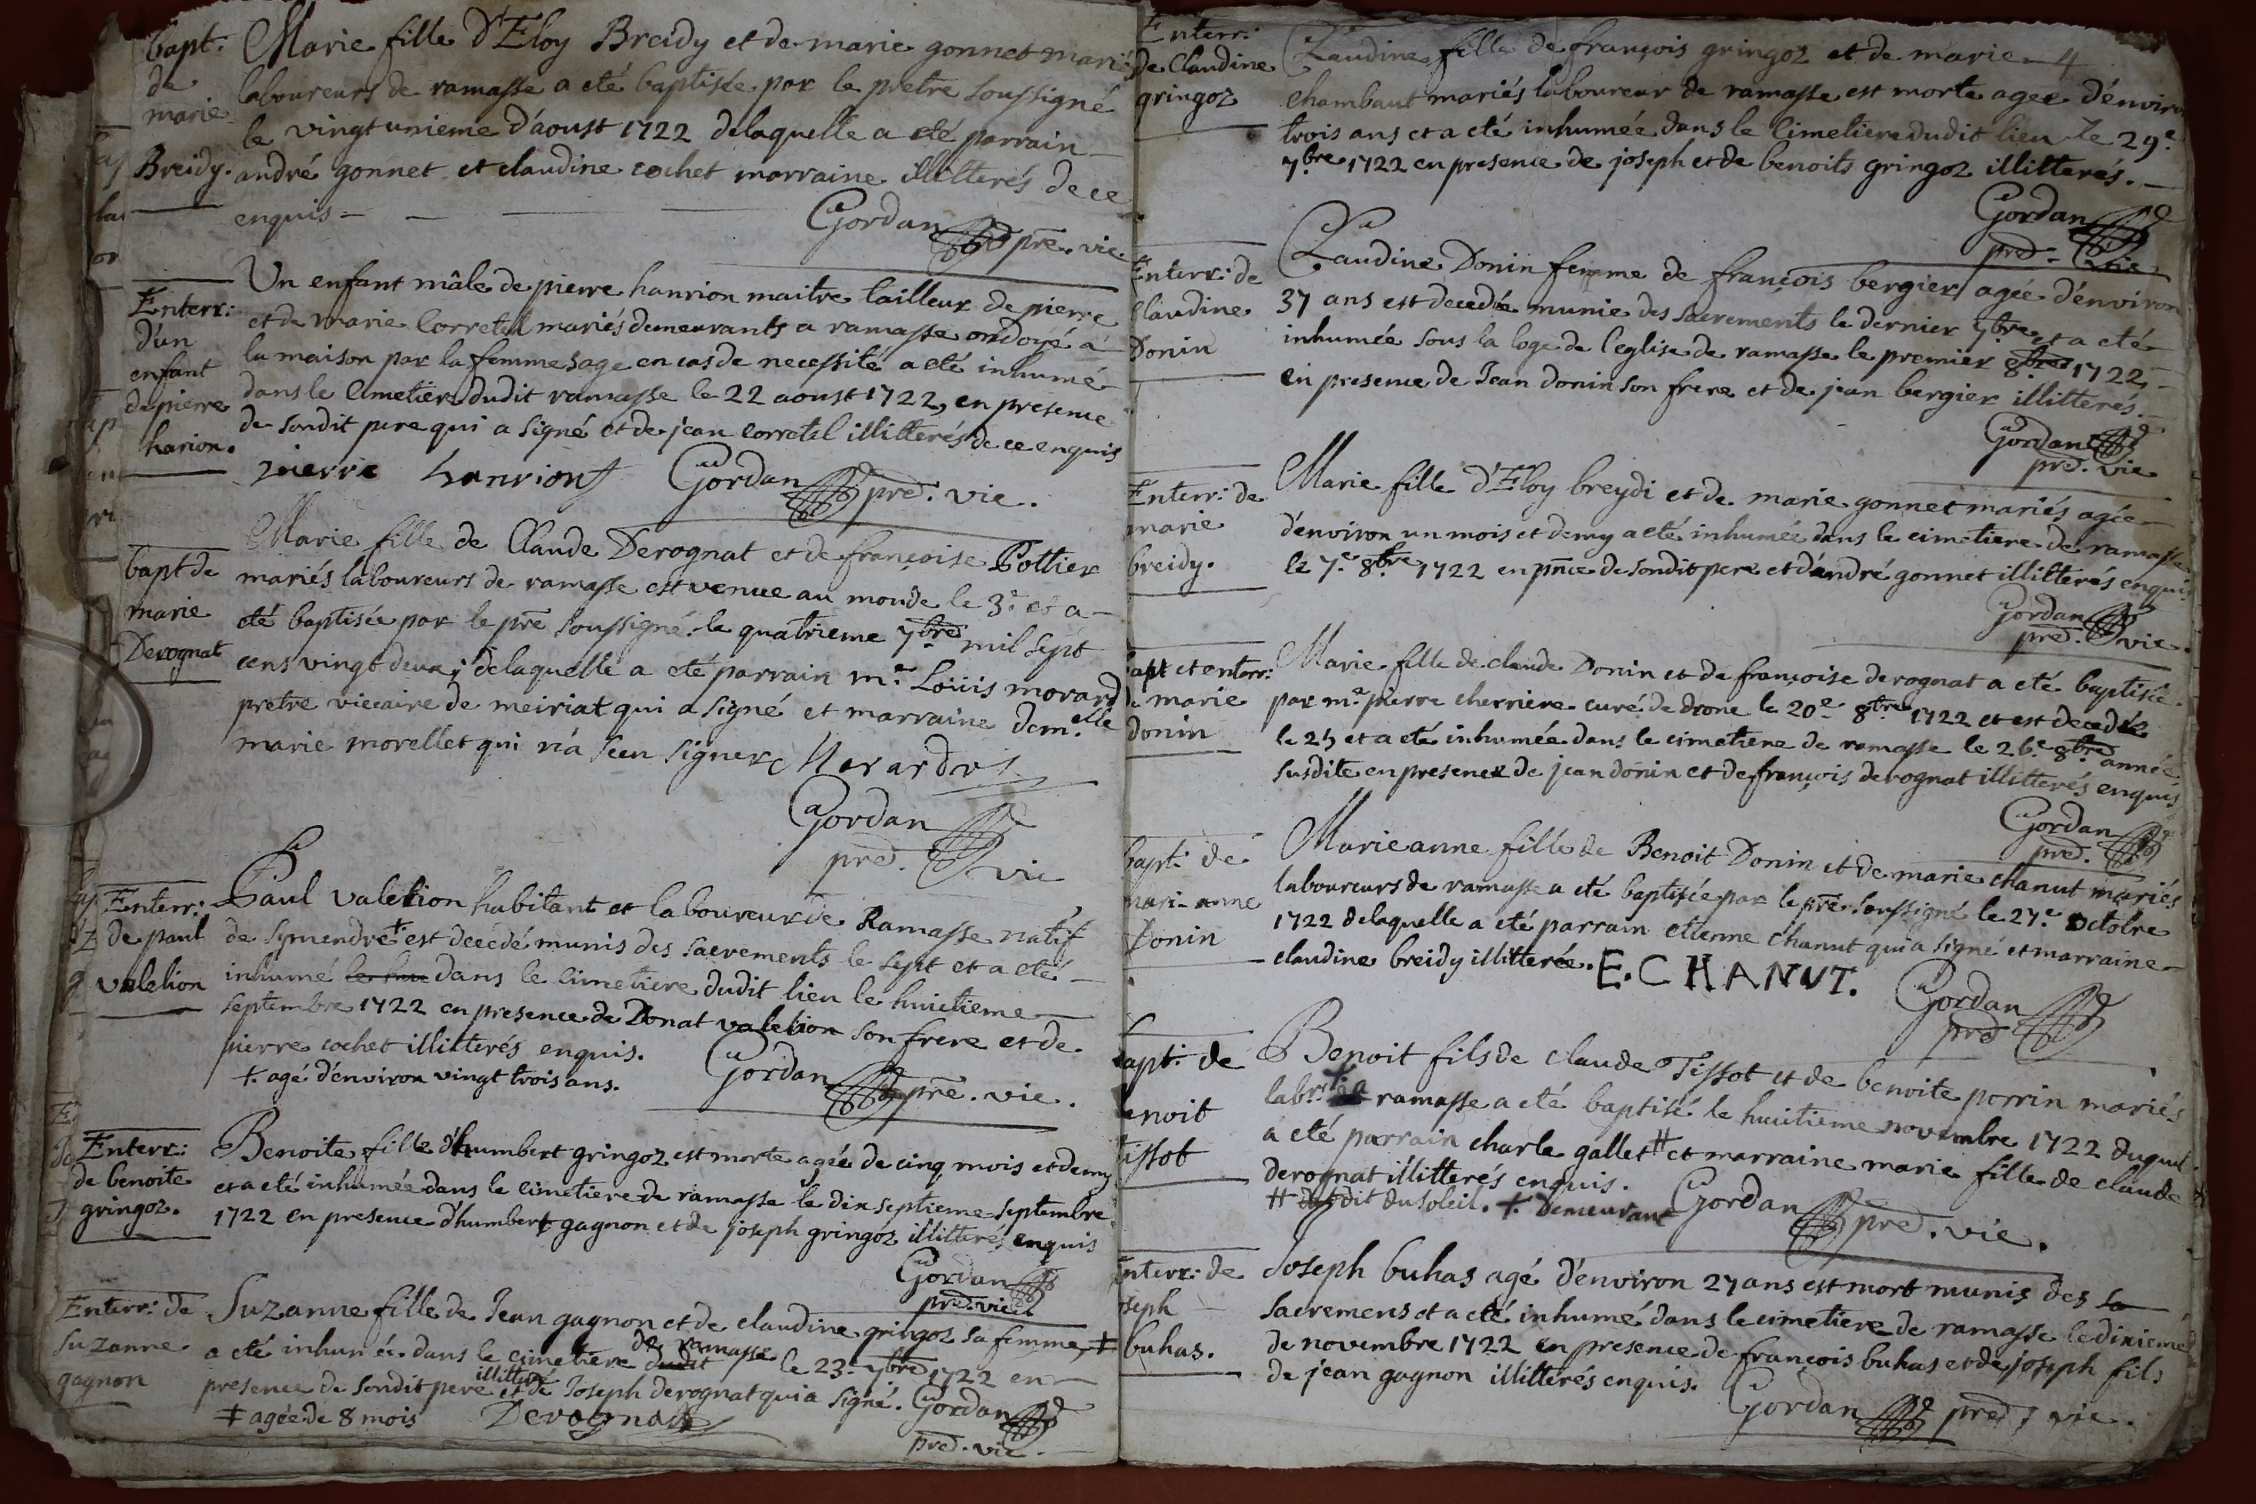 bapt.
de
marie
Breidy.
Marie fille D'Eloy Breidy et de marie gonnet mari
laboureurs de ramasse a eté baptisée par le pretre soussigné
le vingt unieme d'aoust 1722 delaquelle a eté parrain
andré gonnet et claudine cochet marraine illitterés de ce
enquis
Gordan pre. vic.
Enterr:
d'un
enfant
de pierre
harion.
Un enfant mâle de pierre hanrion maitre tailleur de pierre
et de marie Corretel mariés demeurants a ramasse ondoyé a
la maison par la femme sage en cas de necessité a eté inhumé
dans le Cimetiere dudit ramasse le 22 aoust 1722, en presence
de sondit pere qui a signé et de jean Corretel illitterés de ce enquis
pierre hanrion Gordan pre. vic.
bapt de
marie
Derognat
Marie fille de Claude Derognat et de françoise Pottier
mariés laboureurs de ramasse est venue au monde le 3e et a
eté baptisée par le pre soussigné le quatrieme 7bre mil sept
cens vingt deux; delaquelle a eté parrain mre Loüis morard
pretre viccaire de meiriat qui a signé et marraine demelle
marie morellet qui n'a sceu signer Morard
Gordan
pre. vic
Enterr:
de paul
valelion
Paul valelion habitant et laboureur de Ramasse natif
de symendre + est decedé munis des sacrements le sept et a eté
inhumé dans le Cimetiere dudit lieu le huictieme
septembre 1722 en presence de Donat valelion son frere et de
pierre cochet illitterés enquis.
+. agé d'environ vingt trois ans.
Gordan pre. vic.
Enterr:
de benoite
gringoz.
Benoite fille d'humbert gringoz est morte agée de cinq mois et demy
et a eté inhumée dans le Cimetiere de ramasse le dix septieme septembre
1722 en presence d'humbert gagnon et de joseph gringoz illitterés enquis
Gordan
pre. vic.
Enterr: de
suzanne
gagnon
Suzanne fille de Jean gagnon et de claudine gringoz sa femme, ǂ
a eté inhumée dans le cimetiere dudit de ramasse le 23e 7bre 1722 en
presence de sondit pere illitteré et de Joseph derognat qui a signé. Gordan
ǂ agée de 8 mois Derognat
pre. vic.
Enterr:
de Claudine
gringoz
Claudine fille de françois gringoz et de marie 4
chambaut mariés laboureur de ramasse est morte agée d'enviro
trois ans et a eté inhumée dans le Cimetiere dudit lieu le 29e
7bre 1722 en presence de joseph et de benoits gringoz illitterés.
Gordan
pre. vic
Enterr: de
Claudine
Donin
Claudine Donin femme de françois bergier agée d'environ
37 ans est decedée munie des sacrements le dernier 7bre et a eté
inhumée sous la loge de l'eglise de ramasse le premier 8bre 1722,
en presence de Jean donin son frere et de jean bergier illitterés.
Gordan
pre. vic
Enterr: de
marie
breidy.
Marie fille d'Eloy breydi et de marie gonnet mariés agée
d'environ un mois et demy a eté inhumée dans le cimetiere de ramasse
le 7e 8bre 1722 en pnce de sondit pere et d'andré gonnet illitterés enquis
Gordan
pre. vic.
bapt et enterr:
de marie
donin
Marie fille de claude Donin et de françoise derognat a eté baptisée
par mre pierre cherriere curé de drone le 20e 8bre 1722 et est decedée
le 25 et a eté inhumée dans le cimetiere de ramasse le 26e 8bre année
susdite en presence de jean donin et de françois derognat illitterés enquis
Gordan
pre.
bapt: de
mari-anne
Donin
Marieanne fille de Benoit Donin et de marie chanut mariés
laboureurs de ramasse a eté baptisée par le pre soussigné le 27e octobre
1722 delaquelle a eté parrain etienne chanut qui a signé et marraine
claudine breidy illitterée. E. CHANUT.
Gordan
pre
bapt: de
benoit
tissot
Benoit fils de claude Tissot et de benoite porrin mariés
labrs +. ramasse a eté baptisé le huitieme novembre 1722 duquel
a eté parrain charle gallet # et marraine marie fille de claude
derognat illitterés enquis.
# dit du soleil. +. demeurant
Gordan pre. vic.
Enterr: de
joseph
buhas.
Joseph buhas agé d'environ 27 ans est mort munis des sa
sacremens et a eté inhumé dans le cimetiere de ramasse le dixieme
de novembre 1722 en presence de françois buhas et de joseph fils
de jean gagnon illitterés enquis.
Gordan pre. vic.